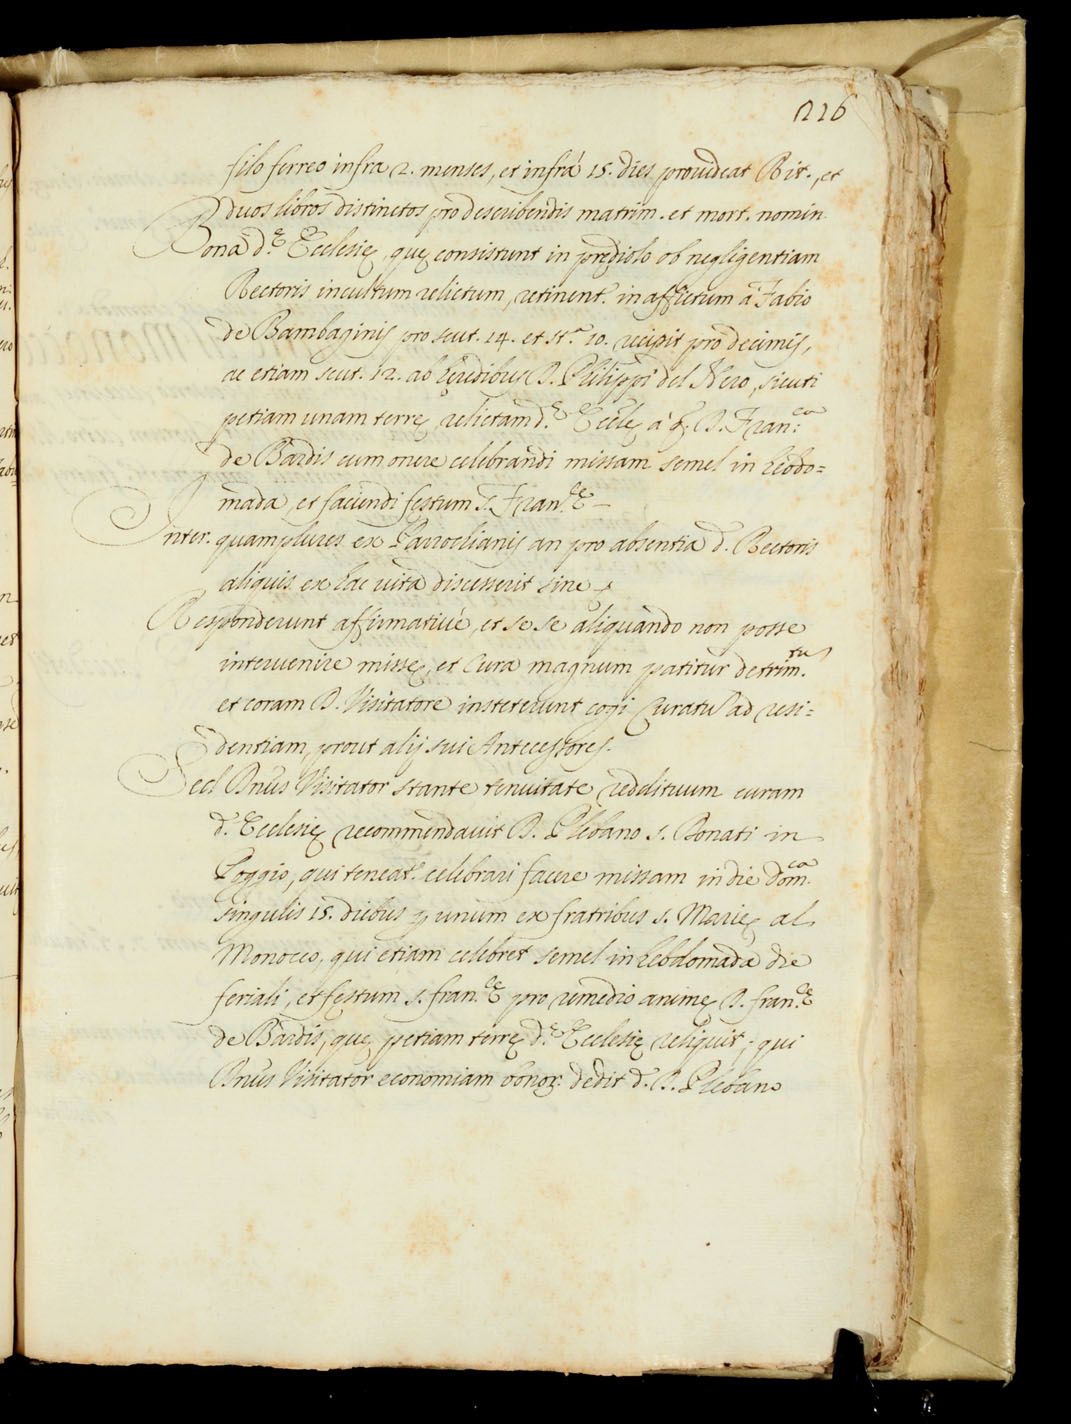 226
filo ferreo infra 2. menses, et infrà 15. dies provideat Rit., et
duos libros distinctos pro describendis matrim. et mort. nomin.
Bona d.ę Ecclesię, quę consistunt in prędiolo ob negligentiam
Rectoris incultum relictum, retinent. in affictum à Fabio
de Bambaginis pro scut. 14. et st.ª 10. recipit pro decimis,
ac etiam scut. 12. ab hęredibus D. Philippi del Nero, sicuti
petiam unam terrę relictam d.ę Eccłę à q. D. Fran.ca
de Bardis cum onere celebrandi missam semel in hebdo=
mada, et faciendi festum S. Fran.ci
Inter. quamplures ex Parrochianis an pro absentia d. Rectoris
aliquis ex hac vita discesserit sine
Responderunt affirmativè, et se se aliquando non posse
intervenire missę, et Cura magnum patitur detrim.tu
et coram D. Visitatore insteterunt cogi Curatũ ad resi=
dentiam, prout alij sui Antecessores.
Sed Dnũs Visitator stante tenuitate reddituum curam
d. Ecclesię recommendavit D. Plebano S. Donati in
Poggio, qui teneat. celebrari facere missam in die dom.ca
singulis 15. diebus p unum ex fratribus S. Marię al
Monocco, qui etiam celebret semel in hebdomada die
feriali, et festum S. fran.ci pro remedio animę D. fran.cę
de Bardis, quę petiam terrę d.ę Ecclesię reliquit; qui
Dnũs Visitator economiam bonor. dedit d. D. Plebano